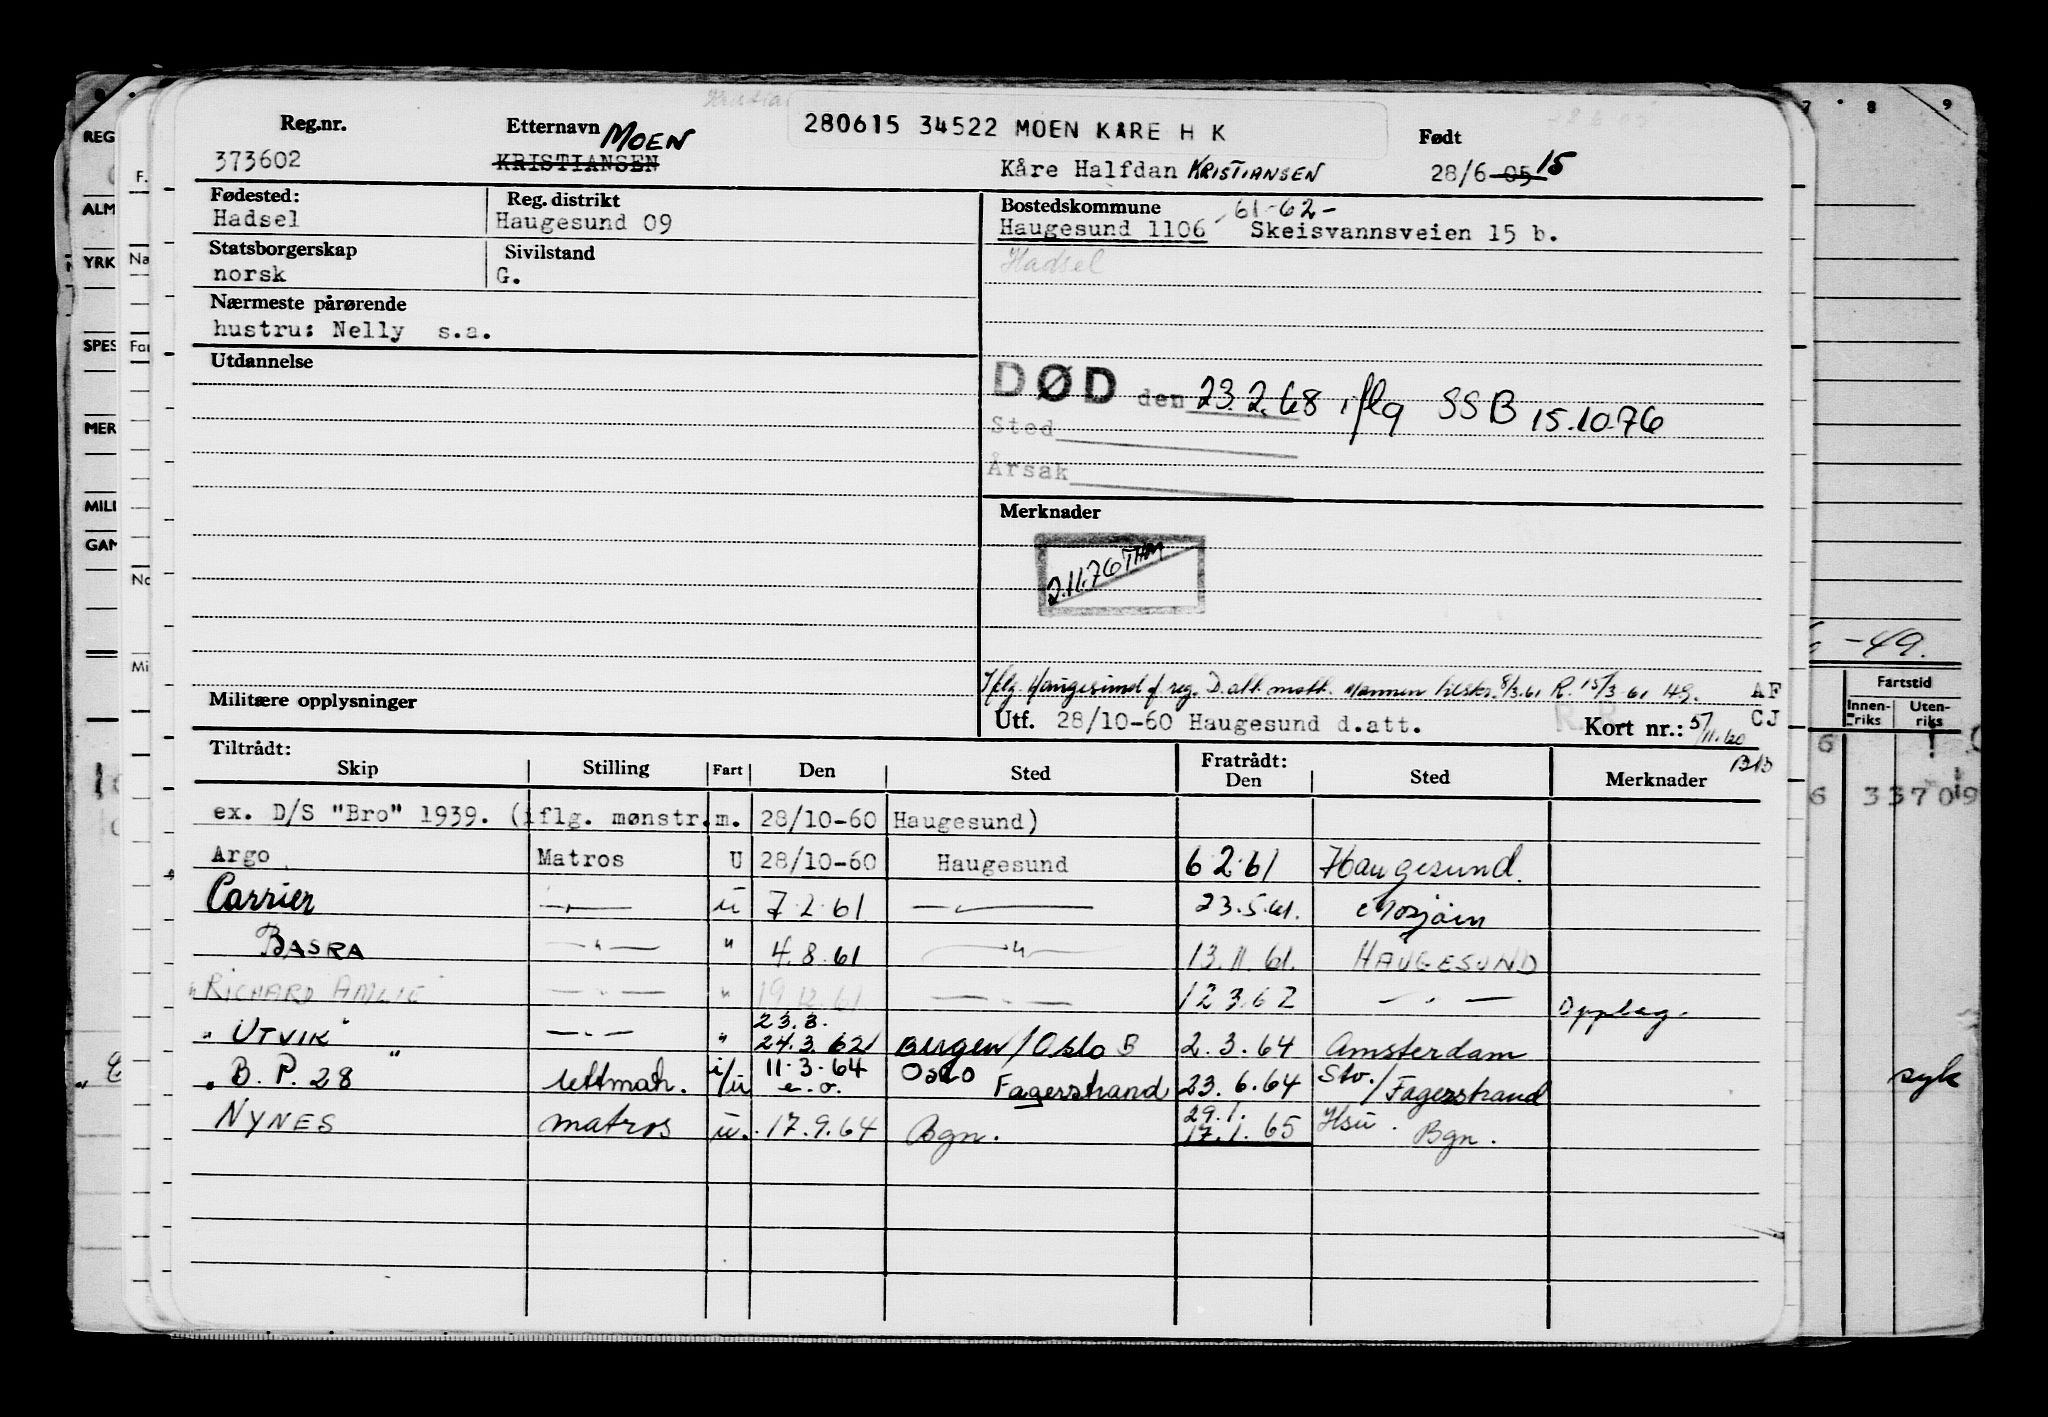 280615 34522 MOEN KÅRE H K
Reg.nr. Etternavn MOEN Født
373602 KRISTIANSEN Kåre Halfdan KRISTIANSEN 28/6-05 15
Fødested: Reg. distrikt Bostedskommune -61-62-
Hadsel Haugesund 09 Haugesund 1106 Skeisvannsveien 15 b.
Statsborgerskap Sivilstand Hadsel
norsk G.
Nærmeste pårørende
hustru: Nelly s.a.
Utdannelse
DØD den 23.2.68 iflg SSB 15.10.76
Sted
Årsak
Merknader
2.11.76 THM
Iflg. Haugesund reg. D.att. 8/3.61 R. 15/3-61 HG. AF
Militære opplysninger
Utf. 28/10-60 Haugesund d.att. R.R. Kort nr.: 5/11.60 CJ
Tiltrådt: Fratrådt:
Skip Stilling Fart Den Sted Den Sted Merknader
ex. D/S "Bro" 1939. (iflg. mønstr.m. 28/10-60 Haugesund)
Argo Matros U 28/10-60 Haugesund 6.2.61 Haugesund.
Carrier — " — u 7.2.61 — " — 23.5.61. Mosjøen
BASRA — " — " 4.8.61 — " — 13.11.61. HAUGESUND
" RICHARD AMLIE — " — " 19.12.61 — " — 12.3.62 — " — Opplag.
23.3.
" UTVIK" — " — " 24.3.62 Bergen/Oslo B 2.3.64 Amsterdam
" B.P. 28" lettmatr. i/u 11.3.64 e.o. Oslo Fagerstrand 23.6.64 Slv./Fagerstrand
29.1. Hsu.
NYNES matros u. 17.9.64 Bgn. 17.1.65 Bgn.
REG
ALM
YRK
SPES
MER
MILI
F.
Na
Far
Mi
7 8 9
-49.
Fartstid
Innen-riks Uten-riks
6
6 33709
syk